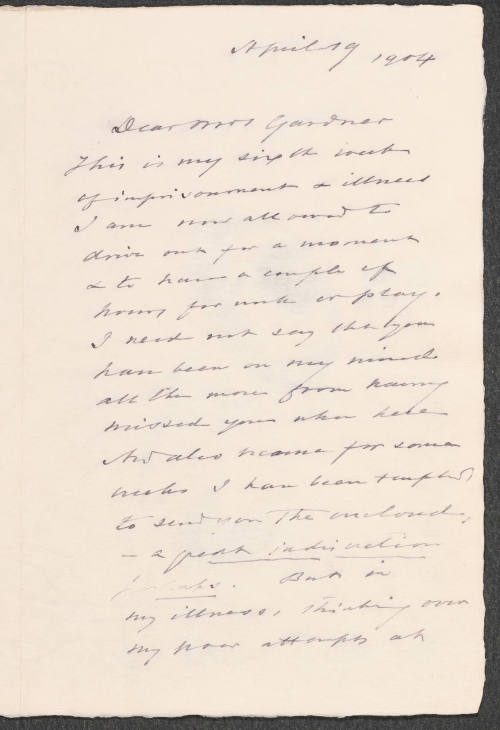 April 19 1904
Dear Mrs Gardner
This is my sixth week
of imprisonment & illness
I am now allowed to
drive out for a moment
& to have a couple of
hours for work or play.
I need not say that you
have been on my mind
all the more from having
missed you when here
And also because for some
weeks I have been tempted
to send you the enclosed,
– a great indiscretion
perhaps. But in
my illness, thinking over
my poor attempts at